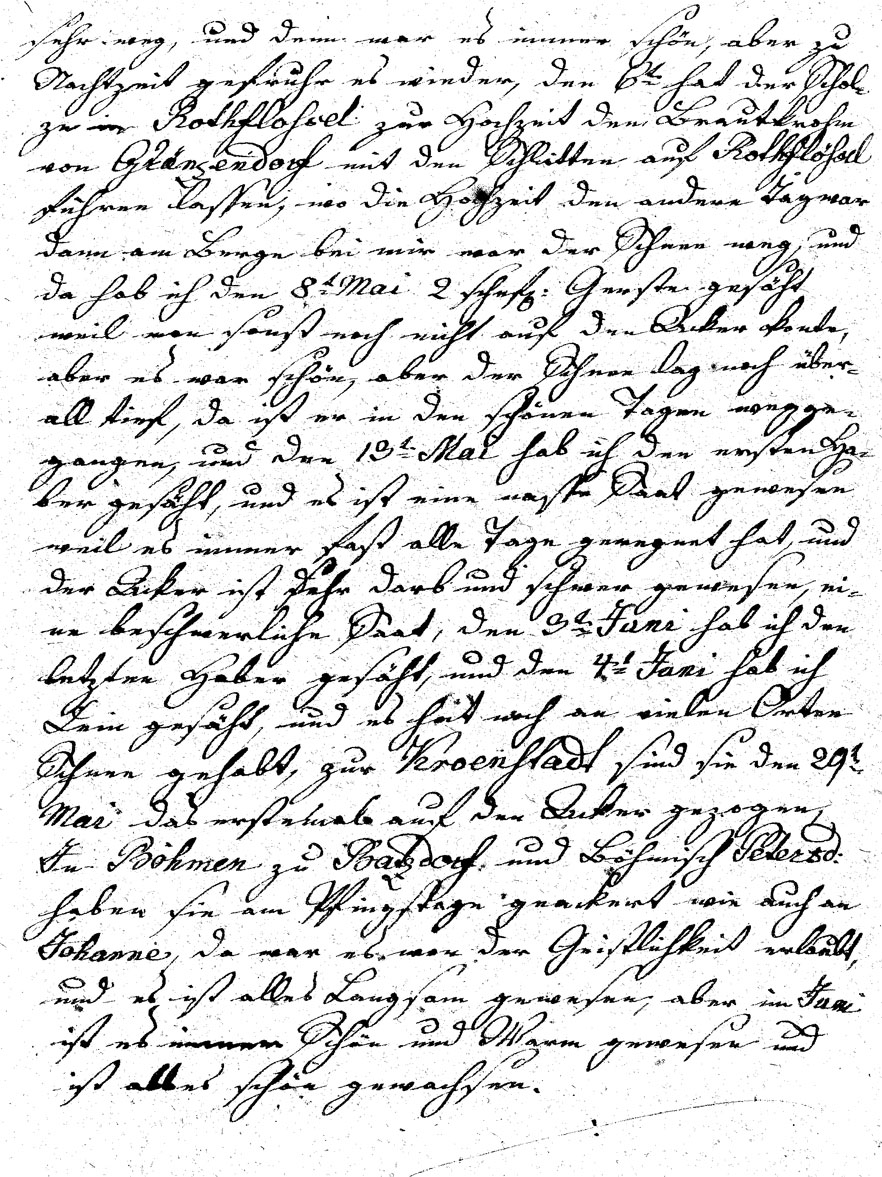 sehr weg, und denn war es immer schön, aber zu
Nachtzeit gefruhr es wieder, den 6t hat der Schol-
ze in Rothflössel zur Hochzeit den Brautkrohm
von Gränzendorf mit den Schlitten auf Rothflössel
führen lassen, wo die Hochzeit den andern Tag war
dann am Berge bei mir war der Schnee weg, und
da hab ich den 8t Mai 2 schefz: Gerste gesäht
weil man sonst noch nicht auf den Acker konte,
aber es war schön, aber der Schnee lag noch über-
all tief, da ist er in den schönen Tagen wegge-
gangen, und den 13t Mai hab ich den ersten Ha-
ber gesäht, und es ist eine nasse Saat gewesen
weil es immer fast alle Tage geregnet hat, und
der Acker ist sehr darb und schwer gewesen, ei-
ne beschwerliche Saat, den 3t Juni hab ich den
letzten Haber gesäht, und den 4t Juni hab ich
Lein gesäht, und es hat noch an vielen Orten
Schnee gehabt, zur Kroenstadt sind sie den 29t
Mai das erstemal auf den Acker gezogen,
In Böhmen zu Batzdorf und Böhmisch Petersd:
haben sie am Pfingstage geackert wie auch an
Johanne, da war es von der Geistlichkeit erlaubt,
und es ist alles Langsam gewesen, aber im Juni
ist es immer Schön und Warm gewesen und
ist alles schön gewachsen.